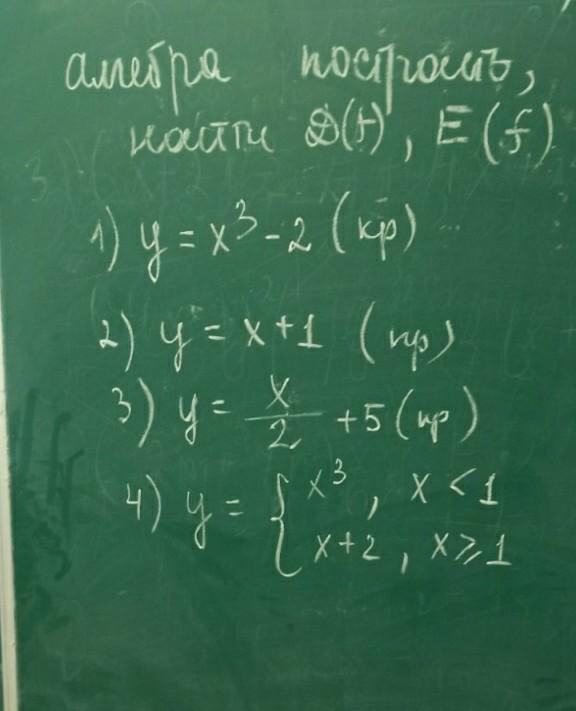 алгебра построить,
найти D(f), E(f)
1) y = x³ - 2 (кр)
2) y = x + 1 (пр)
3) y = x/2 + 5 (пр)
4) y = { x³, x < 1
x + 2, x ⩾ 1